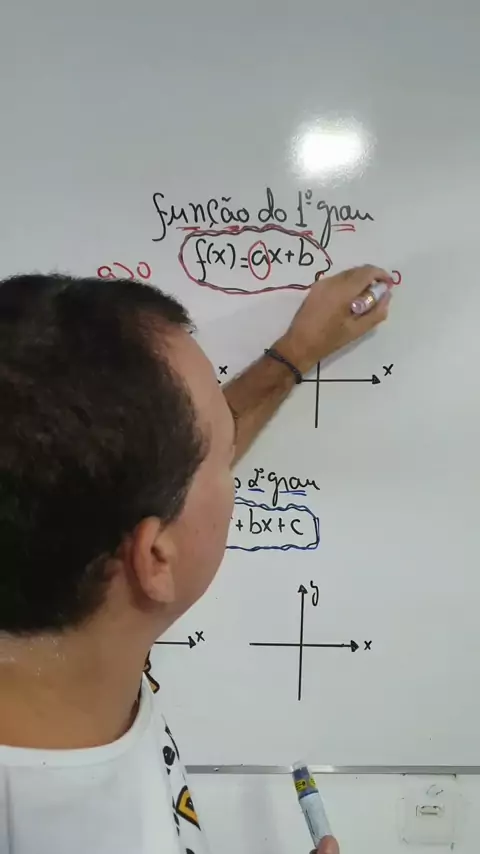 função do 1º grau
f(x)=ax+b
a>0
x
x
2º grau
+bx+c
y
x
x